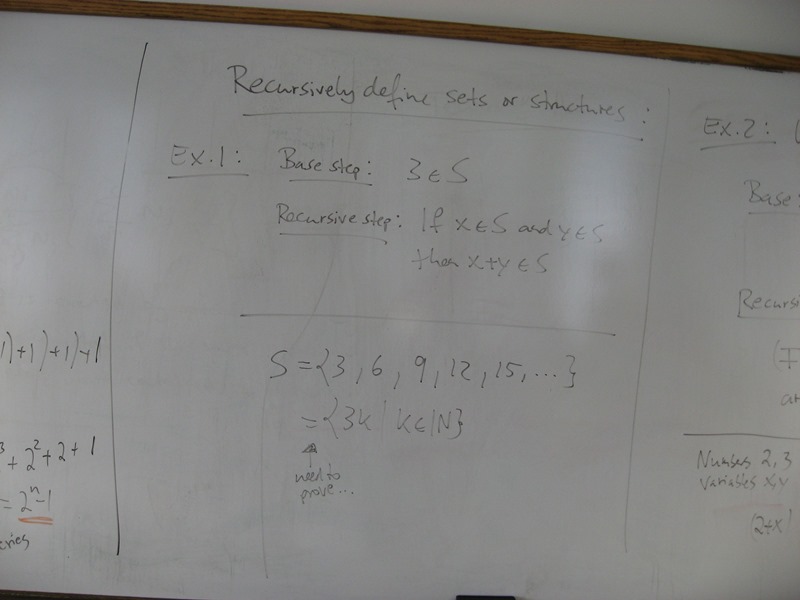 Recursively define sets or structures:
Ex.1: Base step: 3 ∈ S
Recursive step: If x ∈ S and y ∈ S
then x+y ∈ S
S = {3, 6, 9, 12, 15, ...}
= {3k | k ∈ ℕ}
need to
prove...
1)+1)+1)+1
3 + 2² + 2 + 1
= 2ⁿ-1
eries
Ex.2:
Base:
Recursi
Numbers 2, 3
Variables x, y
(2+x)